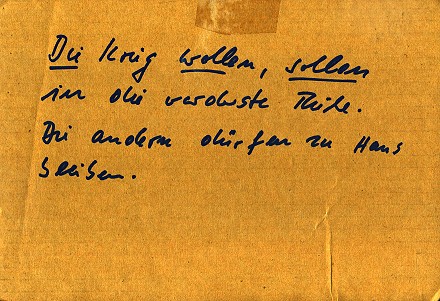 Die Krieg wollen, sollen
in die vorderste Reihe.
Die andern dürfen zu Haus
bleiben.